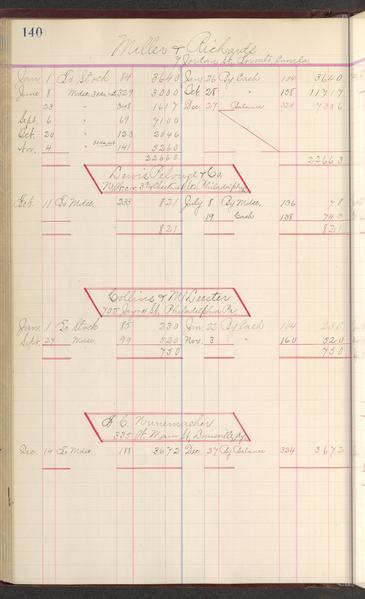 140
Miller & Richards
7 Jordan St. Toronto Canada
Jan. 1 To Stock 84 3640 Jan. 26 By Cash 104 3640
June 8 " Mdse. 329 3000 Oct. 28 " 138 11717
23 " 348 1617 Dec. 27 Balance 324 7306
Sept. 6 " 69 7100
Oct. 20 " 123 2046
Nov. 4 " 141 5260
22663 22663
& Co.
Philadelphia
Oct. 11 To Mdse. 233 821 July 8 By Mdse. 136 78
19 Cash 138 743
821 821
Collins & McLeester
705 Jayne St. Philadelphia Pa
Jan. 1 To Stock 85 230 Jan. 22 By Cash 104 230
Sept. 27 " Mdse. 99 520 Nov. 8 " 160 520
750 750
C. Nunemacher
335 W. Main St. Louisville, Ky
Dec. 14 To Mdse. 188 3672 Dec. 27 By Balance 324 3672